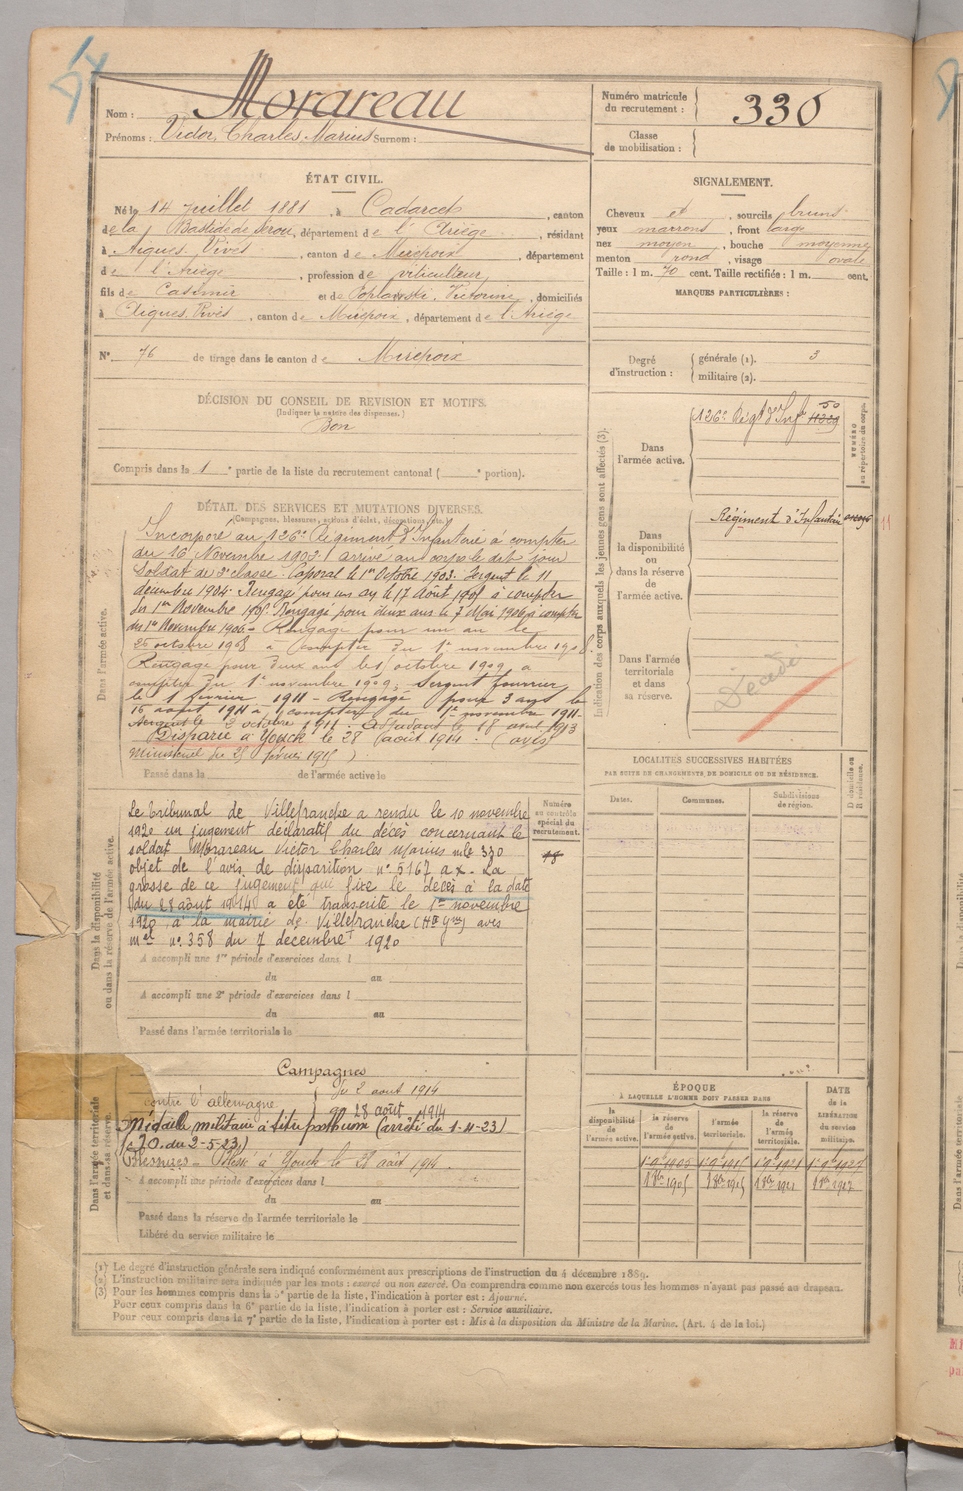 Nom : Morareau
Prénoms : Victor, Charles, Marius Surnom :
Numéro matricule du recrutement : 330
Classe de mobilisation :
ÉTAT CIVIL.
Né le 14 Juillet 1881, à Cadarcet, canton
de la Bastide de Serou, département de l'Ariège, résidant
à Aigues Vives, canton de Mirepoix, département
de l'Ariège, profession de
fils de Casimir et de Victorine, domiciliés
à Aigues Vives, canton de Mirepoix, département de l'Ariège
N° 76 de tirage dans le canton de Mirepoix
SIGNALEMENT.
Cheveux et, sourcils bruns
yeux marrons, front large
nez moyen, bouche moyenne
menton rond, visage ovale
Taille : 1 m. 70 cent. Taille rectifiée : 1 m. cent.
MARQUES PARTICULIÈRES :
Degré d'instruction : générale (1). 3
militaire (2).
DÉCISION DU CONSEIL DE REVISION ET MOTIFS.
(Indiquer la nature des dispenses.)
Bon
Compris dans la 1e partie de la liste du recrutement cantonal ( e portion).
Indication des corps auxquels les jeunes gens sont affectés (3).
Dans l'armée active.
126e Régt d'Inf
50
NUMÉRO au répertoire du corps.
Dans la disponibilité ou dans la réserve de l'armée active.
Régiment d'Infanterie
Dans l'armée territoriale et dans sa réserve.
Décédé
DÉTAIL DES SERVICES ET MUTATIONS DIVERSES.
(Campagnes, blessures, actions d'éclat, décorations, etc.)
Dans l'armée active.
Incorporé au 126e Régiment d'Infanterie à compter
du 16 Novembre 1902, arrivé au corps le dit jour
Soldat de 2e classe. Caporal le 1er Octobre 1903. Sergent le 11
décembre 1904. Rengagé pour un an le 17 Août 1905 à compter
du 1er Novembre 1905. Rengagé pour deux ans le 7 Mai 1906 à compter
du 1er Novembre 1906. Rengagé pour un an le
25 octobre 1908 à compter du 1er novembre 1908
Rengagé pour deux ans le 1 octobre 1909 à
compter du 1er novembre 1909. Sergent fourrier
le 1 février 1911 - Rengagé pour 3 ans le
16 août 1911 à compter du 1er novembre 1911.
Sergent le 2 octobre 1911. Adjudant le 18 avril 1913
Disparu à Yoncq le 28 août 1914. (avis
Ministériel du 25 février 1915)
Passé dans la de l'armée active le
LOCALITÉS SUCCESSIVES HABITÉES
PAR SUITE DE CHANGEMENTS DE DOMICILE OU DE RÉSIDENCE.
Dates.
Communes.
Subdivisions de région.
D domicile ou R résidence.
Dans la disponibilité ou dans la réserve de l'armée active.
Le tribunal de Villefranche a rendu le 10 novembre
1920 un jugement déclaratif du décès concernant le
soldat Morareau Victor Charles Marius mle 330
objet de l'avis de disparition n° 5167 ax. La
grosse de ce jugement qui fixe le décès à la date
du 28 août 1914 a été transcrite le 1er novembre
1920 à la mairie de Villefranche (Hte Gne) avis
mel n° 358 du 7 décembre 1920
Numéro au contrôle spécial du recrutement.
A accompli une 1re période d'exercices dans l
du au
A accompli une 2e période d'exercices dans l
du au
Passé dans l'armée territoriale le
Dans l'armée territoriale et dans sa réserve.
Campagnes
contre l'allemagne du 2 aout 1914
au 28 août 1914
Médaille militaire à titre posthume (arrêté du 1-4-23)
(J.O. du 2-5-23)
Blessures - Blessé à Yoncq le 28 août 1914.
A accompli une période d'exercices dans l
du au
Passé dans la réserve de l'armée territoriale le
Libéré du service militaire le
ÉPOQUE
À LAQUELLE L'HOMME DOIT PASSER DANS
la disponibilité de l'armée active.
la réserve de l'armée active.
l'armée territoriale.
la réserve de l'armée territoriale.
DATE de la LIBÉRATION du service militaire.
(1) Le degré d'instruction générale sera indiqué conformément aux prescriptions de l'instruction du 4 décembre 1889.
(2) L'instruction militaire sera indiquée par les mots : exercé ou non exercé. On comprendra comme non exercés tous les hommes n'ayant pas passé au drapeau.
(3) Pour les hommes compris dans la 5e partie de la liste, l'indication à porter est : Ajourné.
Pour ceux compris dans la 6e partie de la liste, l'indication à porter est : Service auxiliaire.
Pour ceux compris dans la 7e partie de la liste, l'indication à porter est : Mis à la disposition du Ministre de la Marine. (Art. 4 de la loi.)